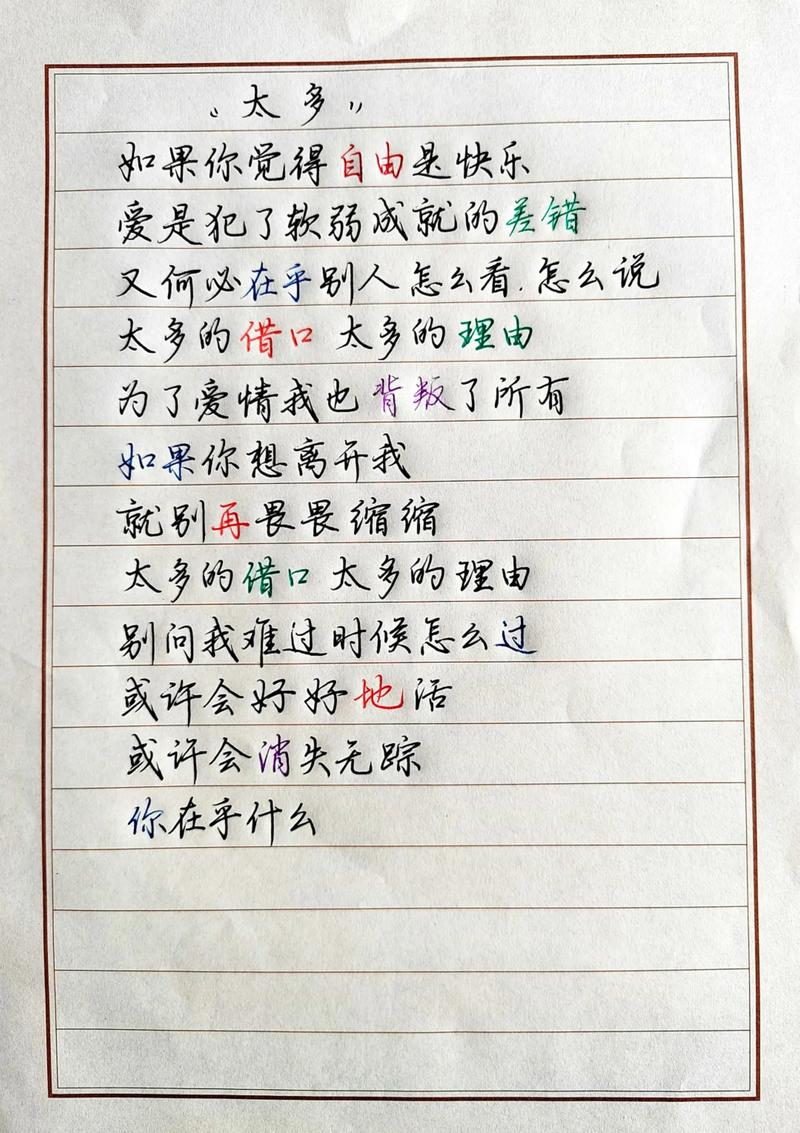 “太多”
如果你觉得自由是快乐
爱是犯了软弱成就的差错
又何必在乎别人怎么看.怎么说
太多的借口 太多的理由
为了爱情我也背叛了所有
如果你想离开我
就别再畏畏缩缩
太多的借口 太多的理由
别问我难过时候怎么过
或许会好好地活
或许会消失无踪
你在乎什么